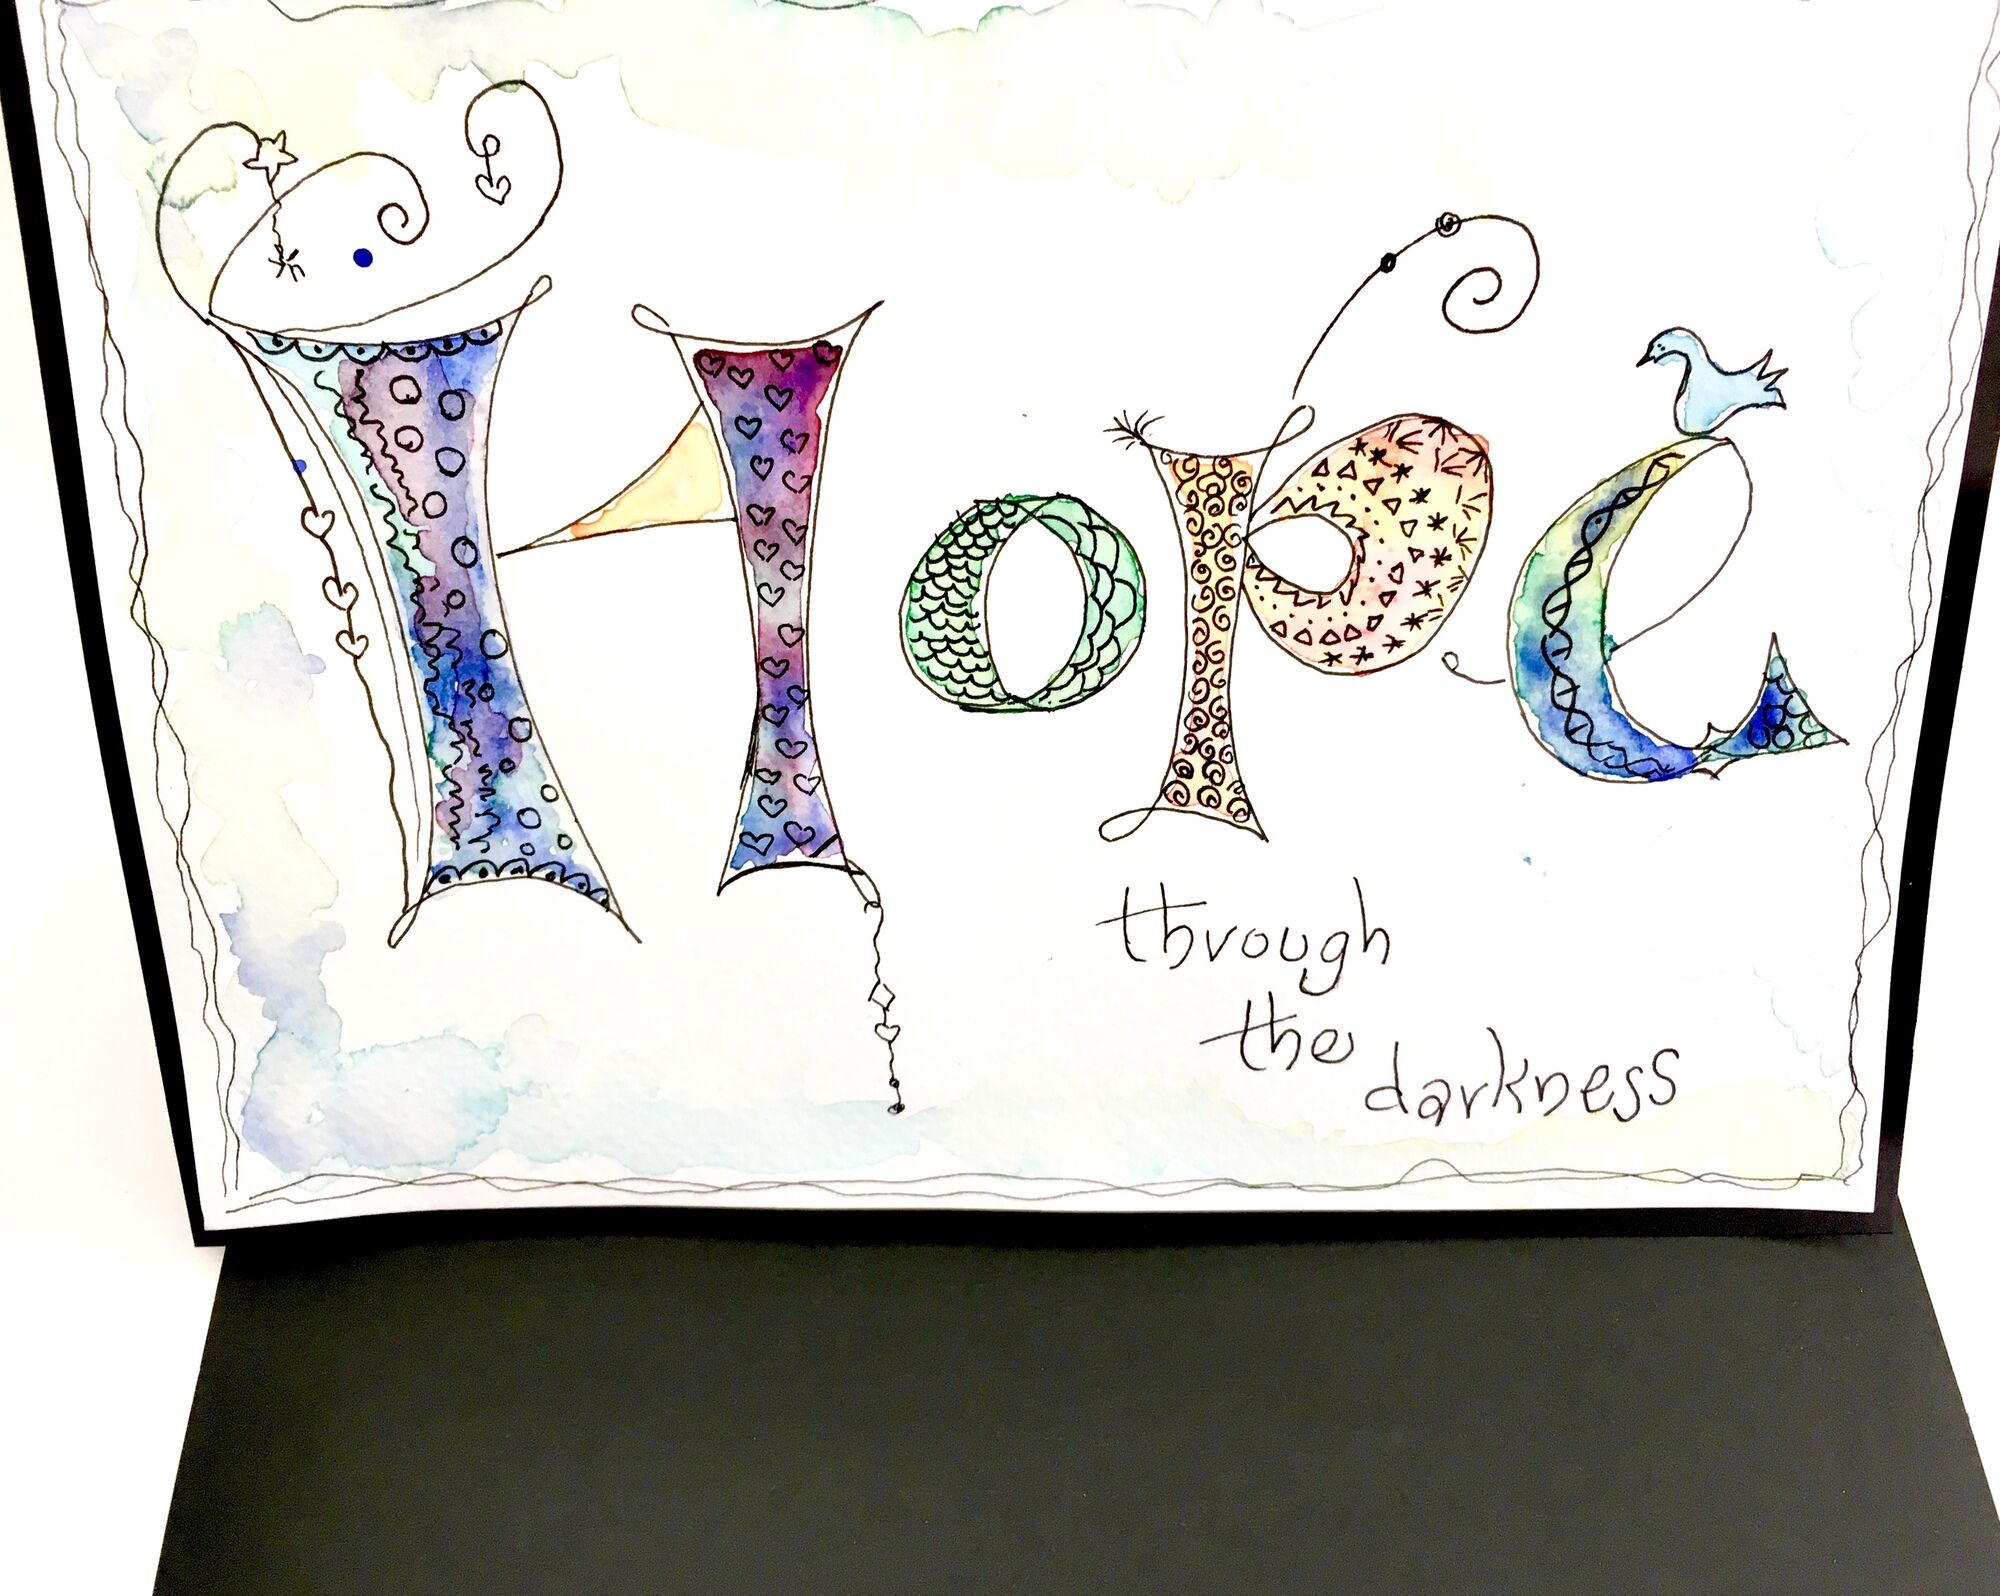 Hope
through
the
darkness